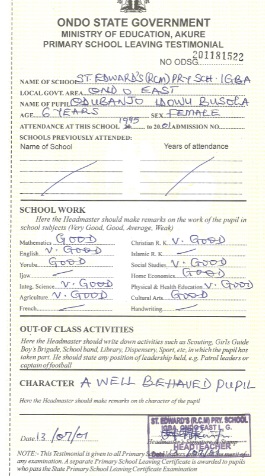 ONDO STATE GOVERNMENT
MINISTRY OF EDUCATION, AKURE
PRIMARY SCHOOL LEAVING TESTIMONIAL
NO ODSG 201181522
NAME OF SCHOOL ST EDWARD'S (RCM) PRY SCH. IGBA
LOCAL GOVT. AREA ONDO EAST
NAME OF PUPIL ODUBANJO IDOWU BUSOLA
AGE 6 YEARS SEX FEMALE
ATTENDANCE AT THIS SCHOOL 1995 to 2001 ADMISSION NO.
SCHOOLS PREVIOUSLY ATTENDED:
Name of School Years of attendance
SCHOOL WORK
Here the Headmaster should make remarks on the work of the pupil in
school subjects (Very Good, Good, Average, Weak)
Mathematics GOOD Christian R. K. V. GOOD
English V. GOOD Islamic R. K.
Yoruba GOOD Social Studies V. GOOD
Ijaw Home Economics GOOD
Integ. Science V. GOOD Physical & Health Education V. GOOD
Agriculture V. GOOD Cultural Arts GOOD
French Handwriting
OUT-OF CLASS ACTIVITIES
Here the Headmaster should write down activities such as Scouting, Girls Guide
Boy's Brigade, School band, Library, Dispensery, Sport, etc, in which the pupil has
taken part. He should state any position of leadership held, e.g. Patrol leaders or
captain of football
CHARACTER A WELL BEHAVED PUPIL
Here the Headmaster should make remarks on character of the pupil
ST. EDWARD'S (R.C.M) PRY. SCHOOL
IGBA, ONDO EAST L. G.
Date 13/07/01
HEADTEACHER
13/07/01
NOTE:- This Testimonial is given to all Primary
any examination. A separate Primary School Leaving Certificate is awarded to pupils
who pass the State Primary School Leaving Certificate Examination